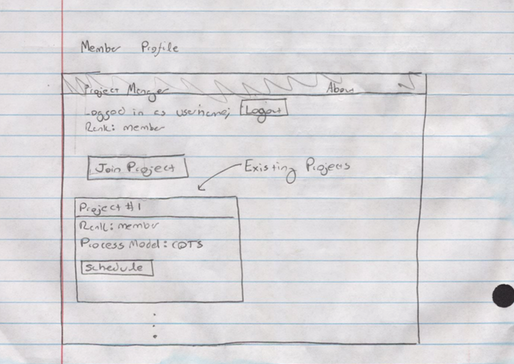 Member Profile
Project Manager About
Logged in as username; Logout
Rank: member
Join Project
Existing Projects
Project #1
Rank: member
Process Model: COTS
Schedule